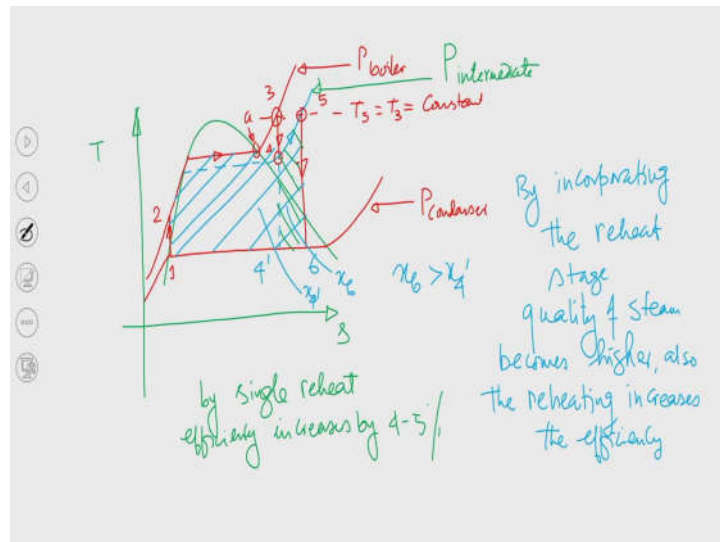 P boiler
P intermediate
3
5
a
T5 = T3 = Constant
T
4
2
P Condenser
1
4'
6
x6
x4'
x6 > x4'
S
By incorporating
the reheat
stage
quality of steam
becomes higher, also
the reheating increases
the efficiency
by single reheat
efficiency increases by 4-5%